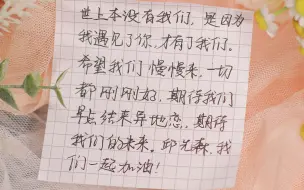 世上本没有我们，是因为
我遇见了你，才有了我们。
希望我们慢慢来，一切
都刚刚好，期待我们
早点结束异地恋，期待
我们的未来。邱元森，我
们一起加油！